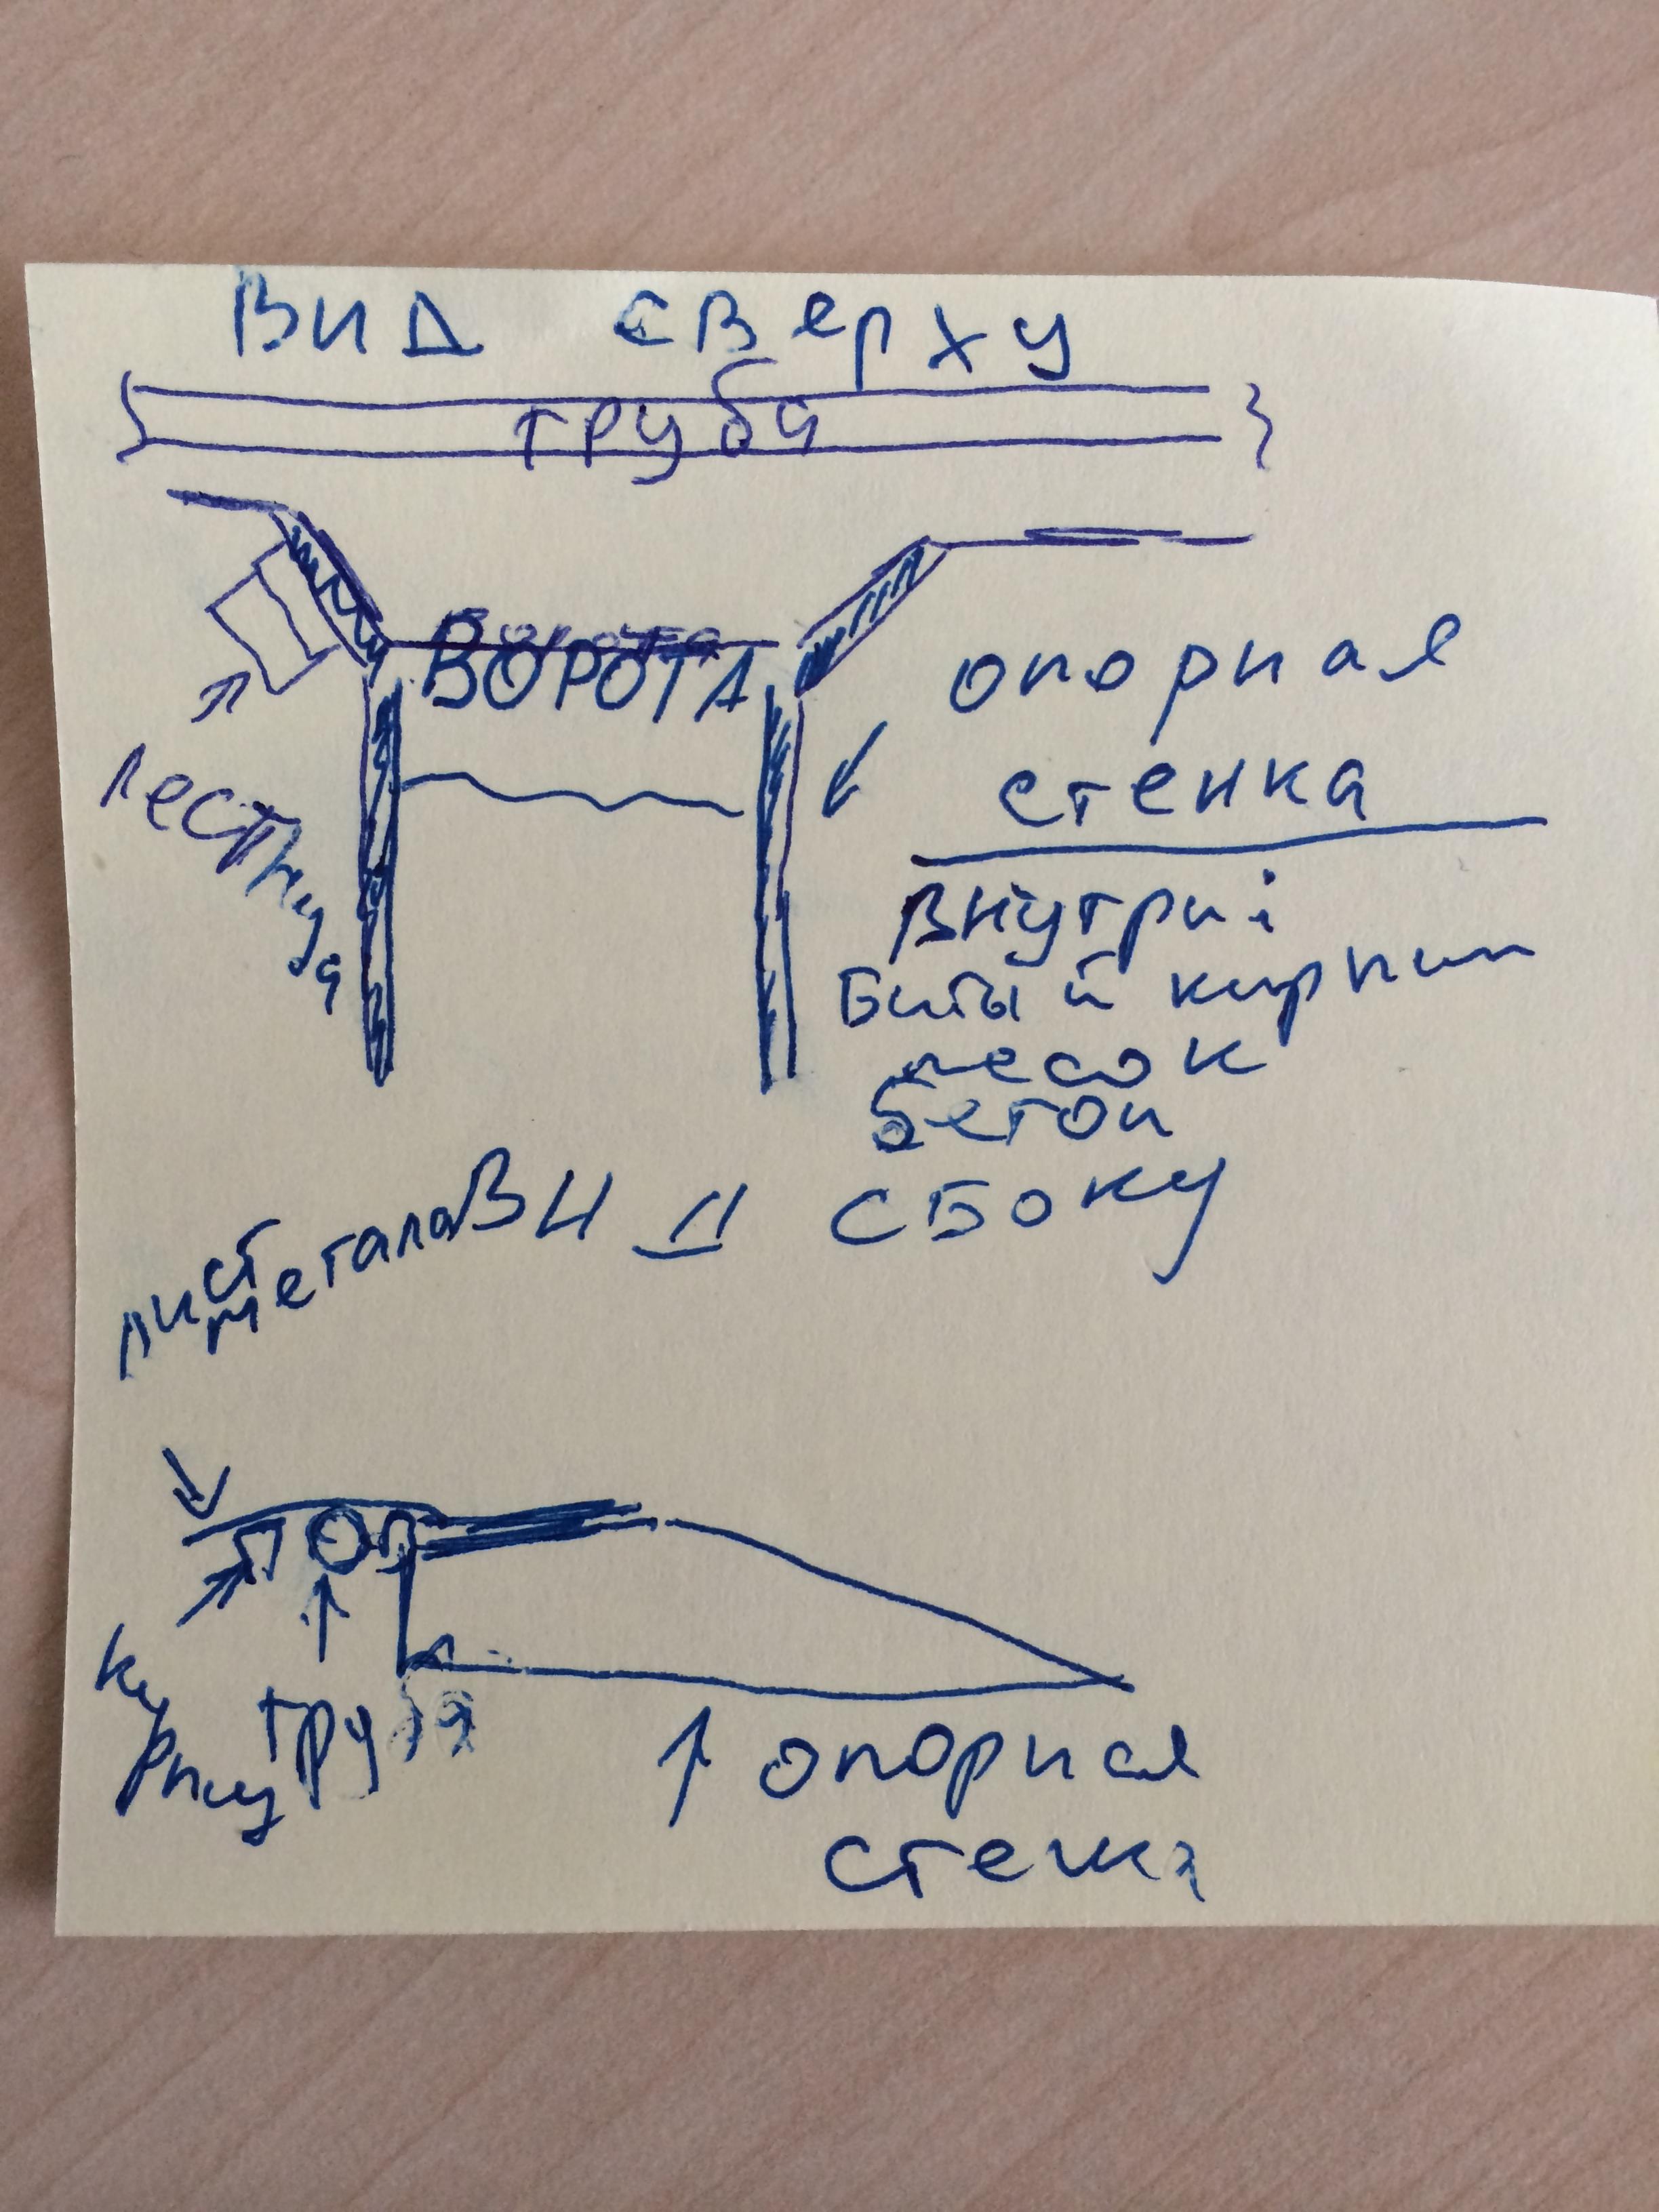 ВИД СВЕРХУ
труба
ВОРОТА
опорная
стенка
лестница
Внутри:
Битый кирпич
песок
бетон
ВИД СБОКУ
лист
метала
кирпич
труба
опорная
стенка